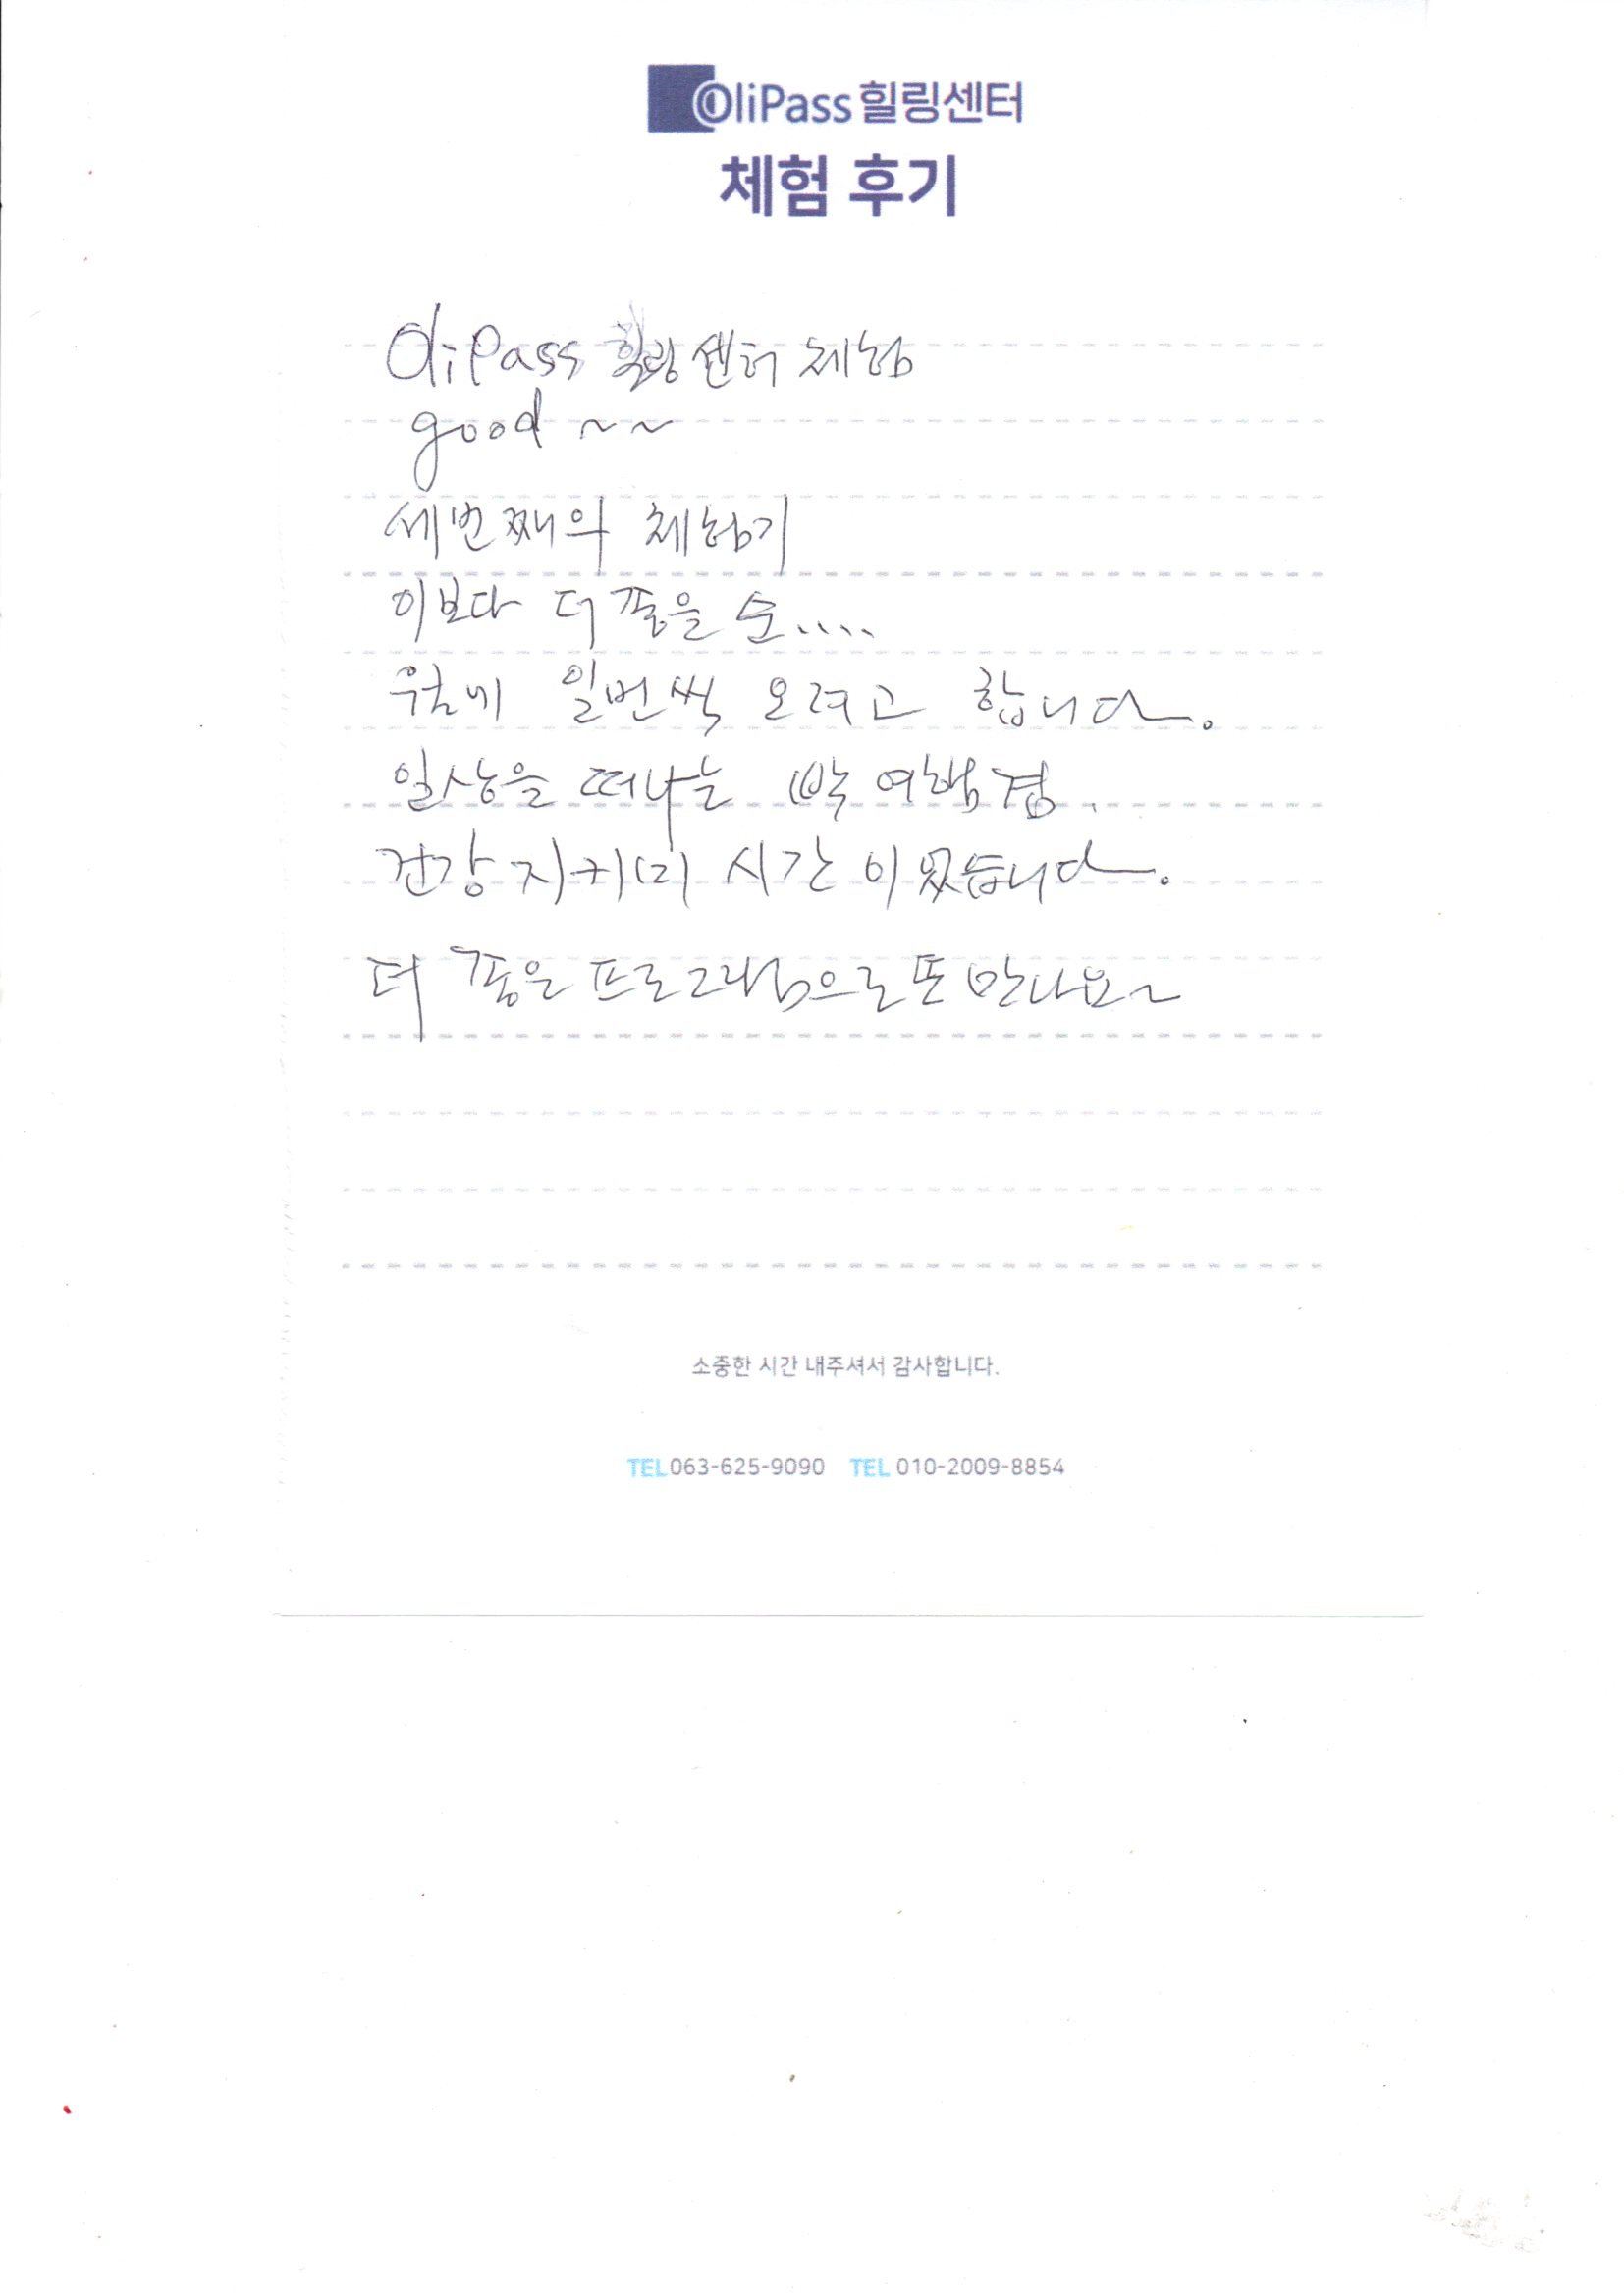 OliPass 힐링센터
체험 후기
OliPass 힐링 센터 체험
good ~~
세번째의 체험기
이보다 더 좋을 순....
월에 일번씩 오려고 합니다.
일상을 떠나는 1박 여행 겸.
건강지키미 시간이었습니다.
더 좋은 프로그램으로 또 만나요~
소중한 시간 내주셔서 감사합니다.
TEL 063-625-9090 TEL 010-2009-8854